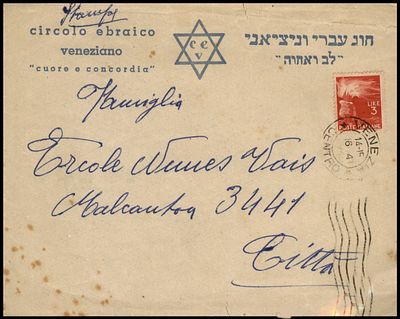 Stampe
circolo ebraico
veneziano
"cuore e concordia"
c e
v
חוג עברי וניציאני
"לב ואחוה"
LIRE
3
POSTE ITALIANE
VENEZIA
CENTRO
Famiglia
Ercole Nunes Vais
Malcanton 3441
Città